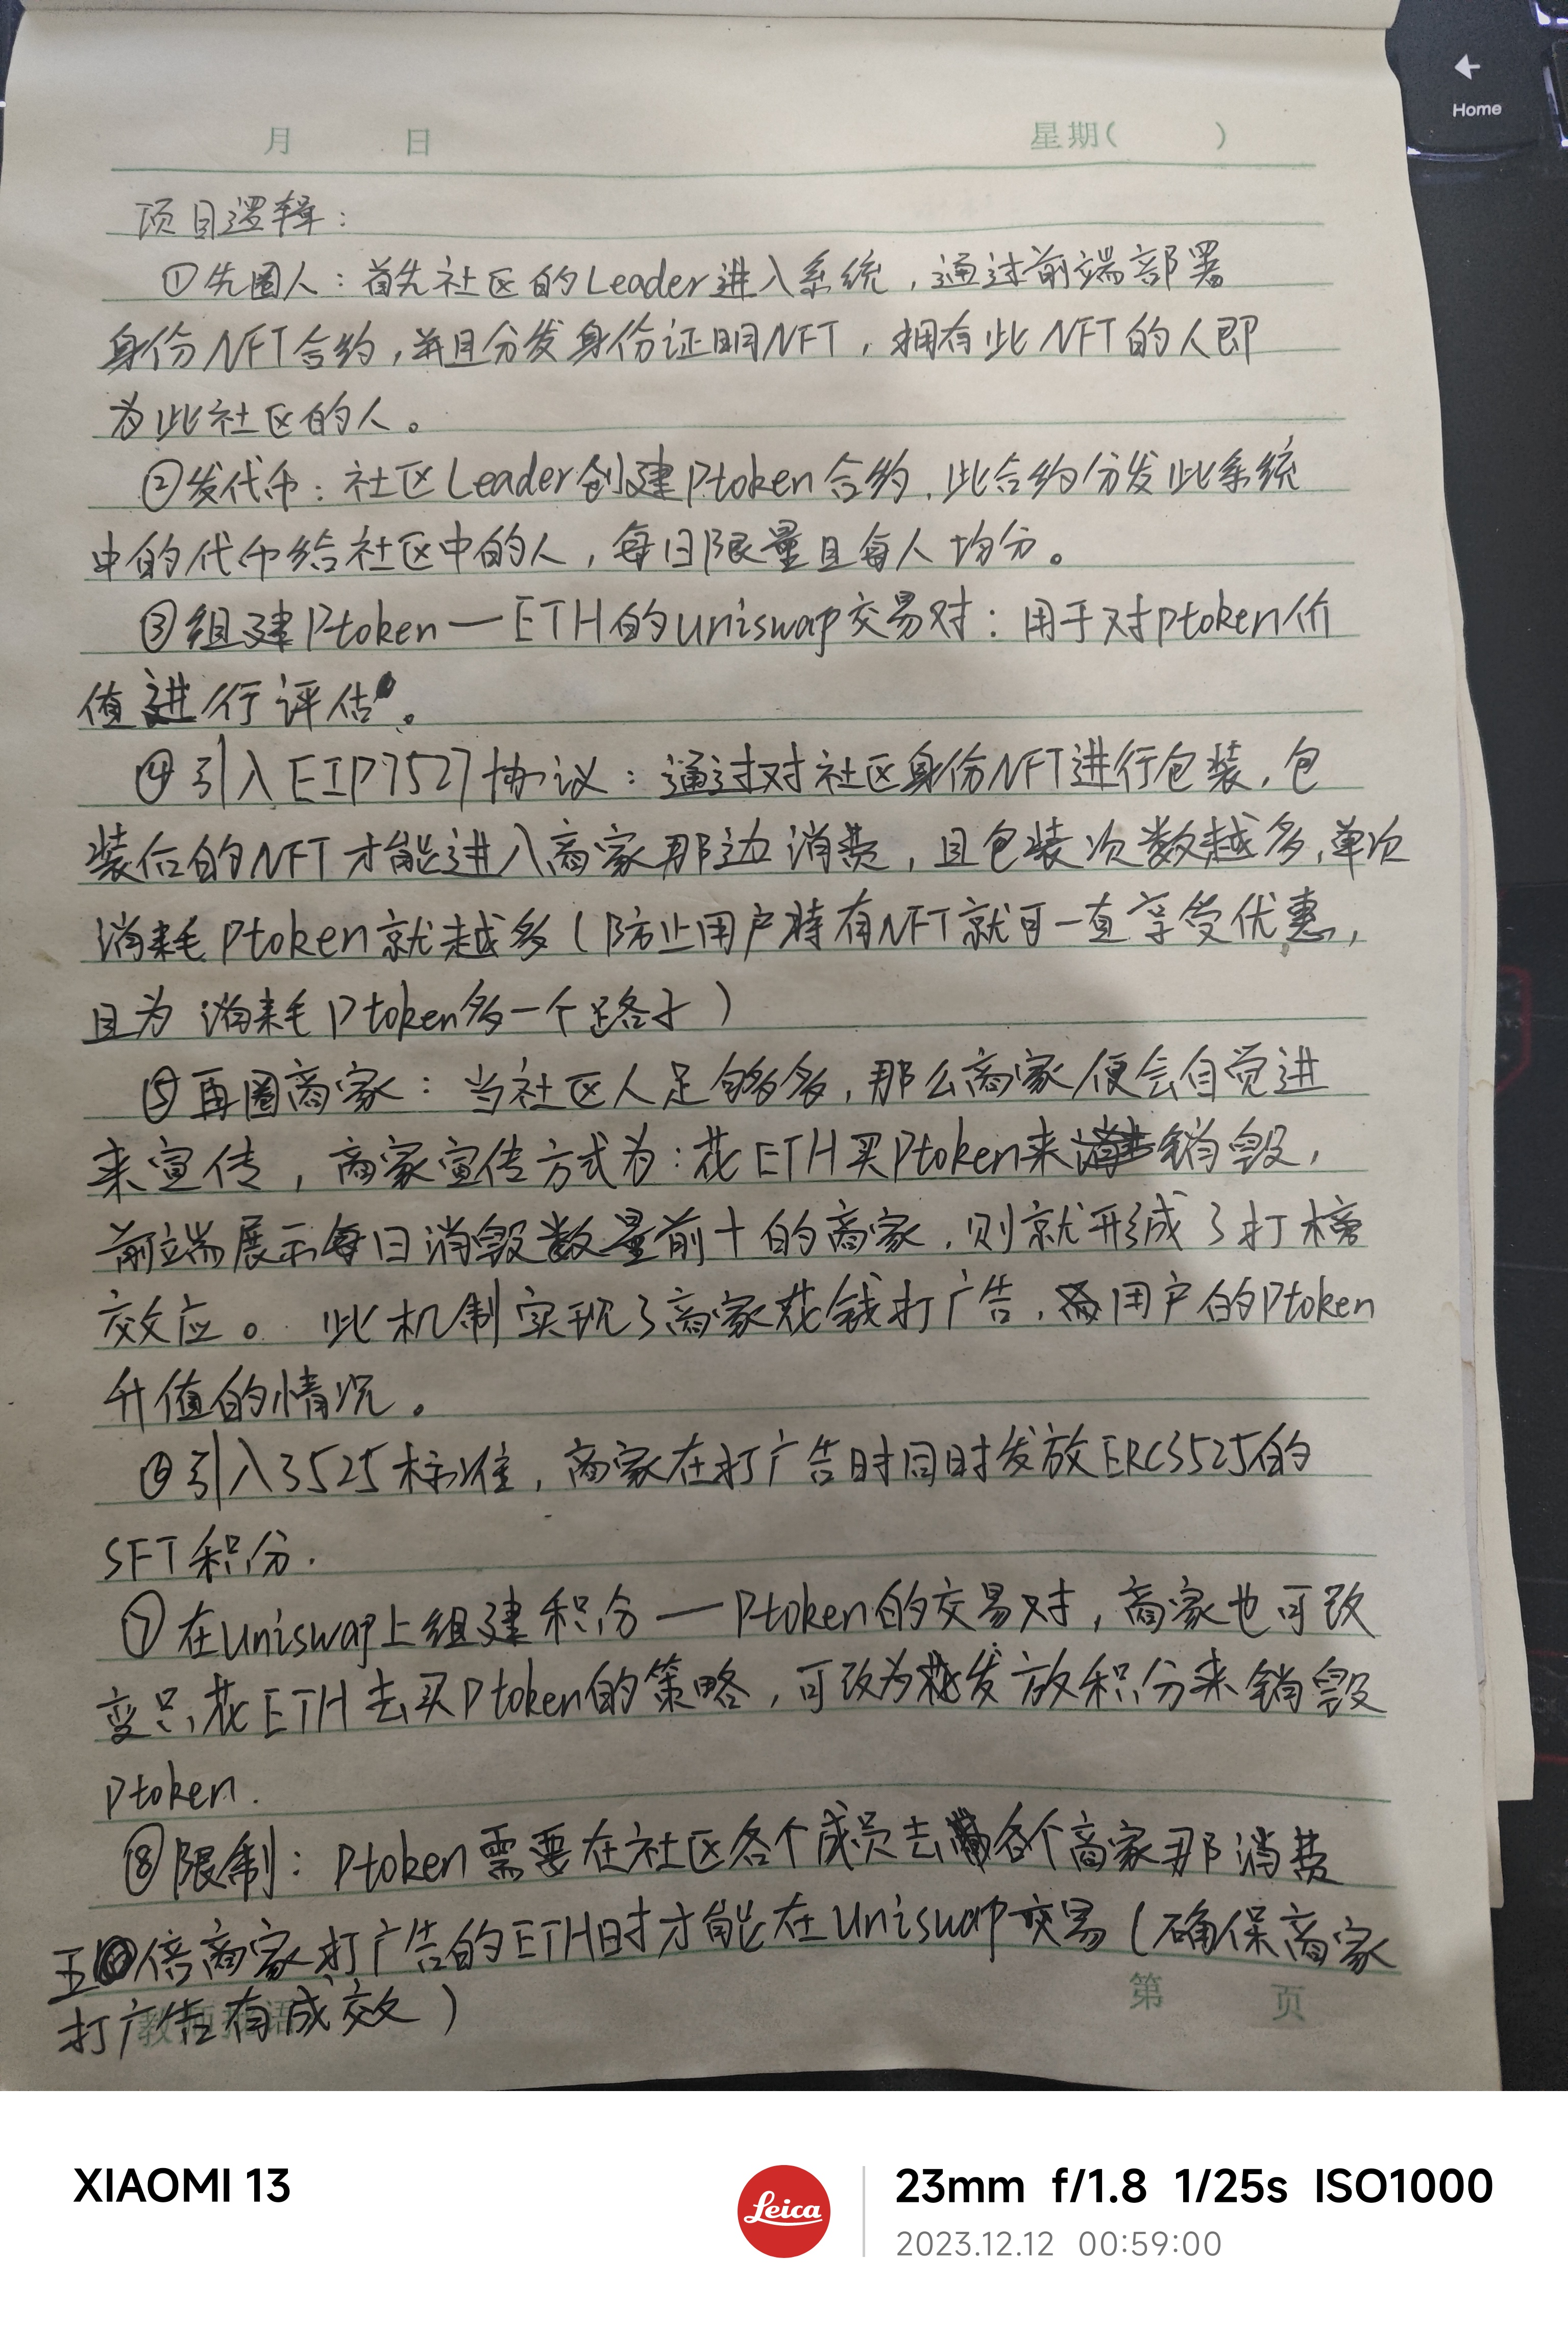 Home
月 日 星期( )
项目逻辑：
①先圈人：首先社区的Leader进入系统，通过前端部署
身份NFT合约，并且分发身份证明NFT，拥有此NFT的人即
为此社区的人。
②发代币：社区Leader创建Ptoken合约，此合约分发此系统
中的代币给社区中的人，每日限量且每人均分。
③组建Ptoken—ETH的uniswap交易对：用于对ptoken价
值进行评估。
④引入EIP7527协议：通过对社区身份NFT进行包装，包
装后的NFT才能进入商家那边消费，且包装次数越多，单次
消耗Ptoken就越多（防止用户持有NFT就可一直享受优惠，
且为消耗Ptoken多一个路子）
⑤再圈商家：当社区人足够多，那么商家便会自觉进
来宣传，商家宣传方式为：花ETH买Ptoken来销毁，
前端展示每日消毁数量前十的商家，则就形成了打榜
效应。此机制实现了商家花钱打广告，用户的Ptoken
升值的情况。
⑥引入3525标准，商家在打广告时同时发放ERC3525的
SFT积分.
⑦在uniswap上组建积分—Ptoken的交易对，商家也可改
变只花ETH去买Ptoken的策略，可改为发放积分来销毁
Ptoken.
⑧限制：Ptoken需要在社区各个成员去各个商家那消费
五倍商家打广告的ETH时才能在uniswap交易（确保商家
第 页
打广告有成效）
XIAOMI 13
Leica
23mm f/1.8 1/25s ISO1000
2023.12.12 00:59:00